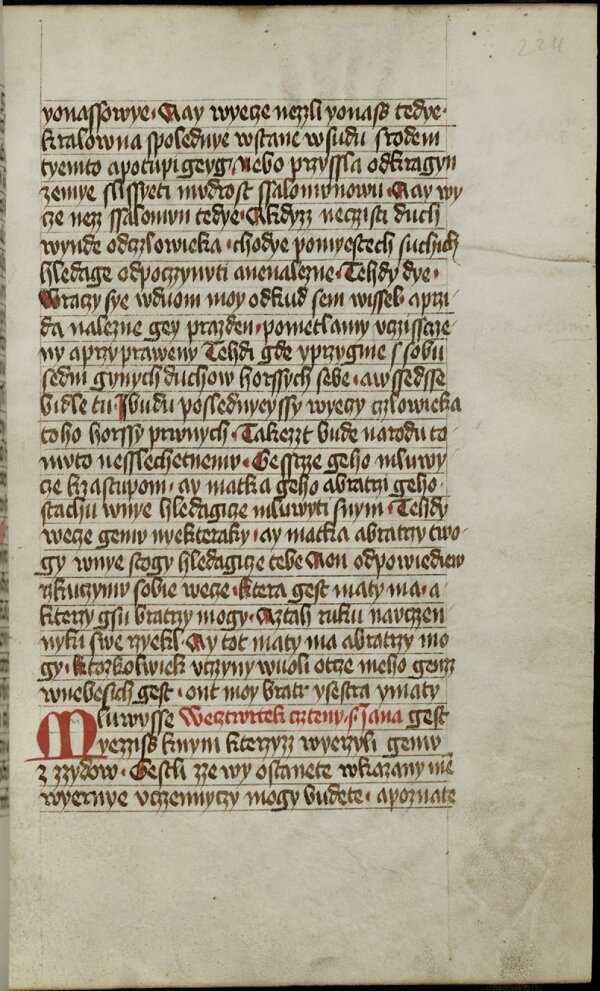 224
yonassowye · A ay wyecze nezzli yonass tedye ·
kralowna spolednye wstane wsudu srodem
tyemto apotupi geyg / nebo przyssla odkragyn
zemye slissyeti mudrost ssalomunowu · A ay wy
cze nezz ssalomun tedye · A kdyzz neczisti duch
wynde odczlowieka · chodye pomyestech suchich
hledage odpoczynuti anenalezne · Tehdy dye ·
Wraczy sye wduom moy odkud sem wissel · a przi
da nalezne gey prazden · pometlamy vczisscze
ny aprzypraweny Tehdi gde yprzygme s sobu
sedm gynych duchow horssych sebe · awssedsse
bidle tu · Ibudu poslednyeyssy wyeczy czlowieka
toho horssy prwnych · Takezzt bude narodu to
muto nesslechetnemu · Gesscze geho mluwy
cze kzastupom · ay matka geho abratrzi geho ·
stachu wnye hledagicze mluwyti snym · Tehdy
wecze gemu nyekteraky · ay matka abratrzy two
gy wnye stogy hledagicze tebe A on odpowiediew
rzkuczymu sobie wecze · ktera gest maty ma · a
kterzy gsu bratrzy mogy · A ztah ruku navczen
nyku swe rzyekl · Ay tot maty ma abratrzy mo
gy · ktozkolwiek vczyny wuoli otcze meho genz
wnebesich gest · ont moy bratr ysestra ymaty
Mluwysse Wecztwrtek czteny · s · Jana gest
yezziss knym kterzyzz wyerzyli gemu
z zzydow · Gestli zze wy ostanete wkazany me
wyernye vczennyczy mogy budete · apoznate